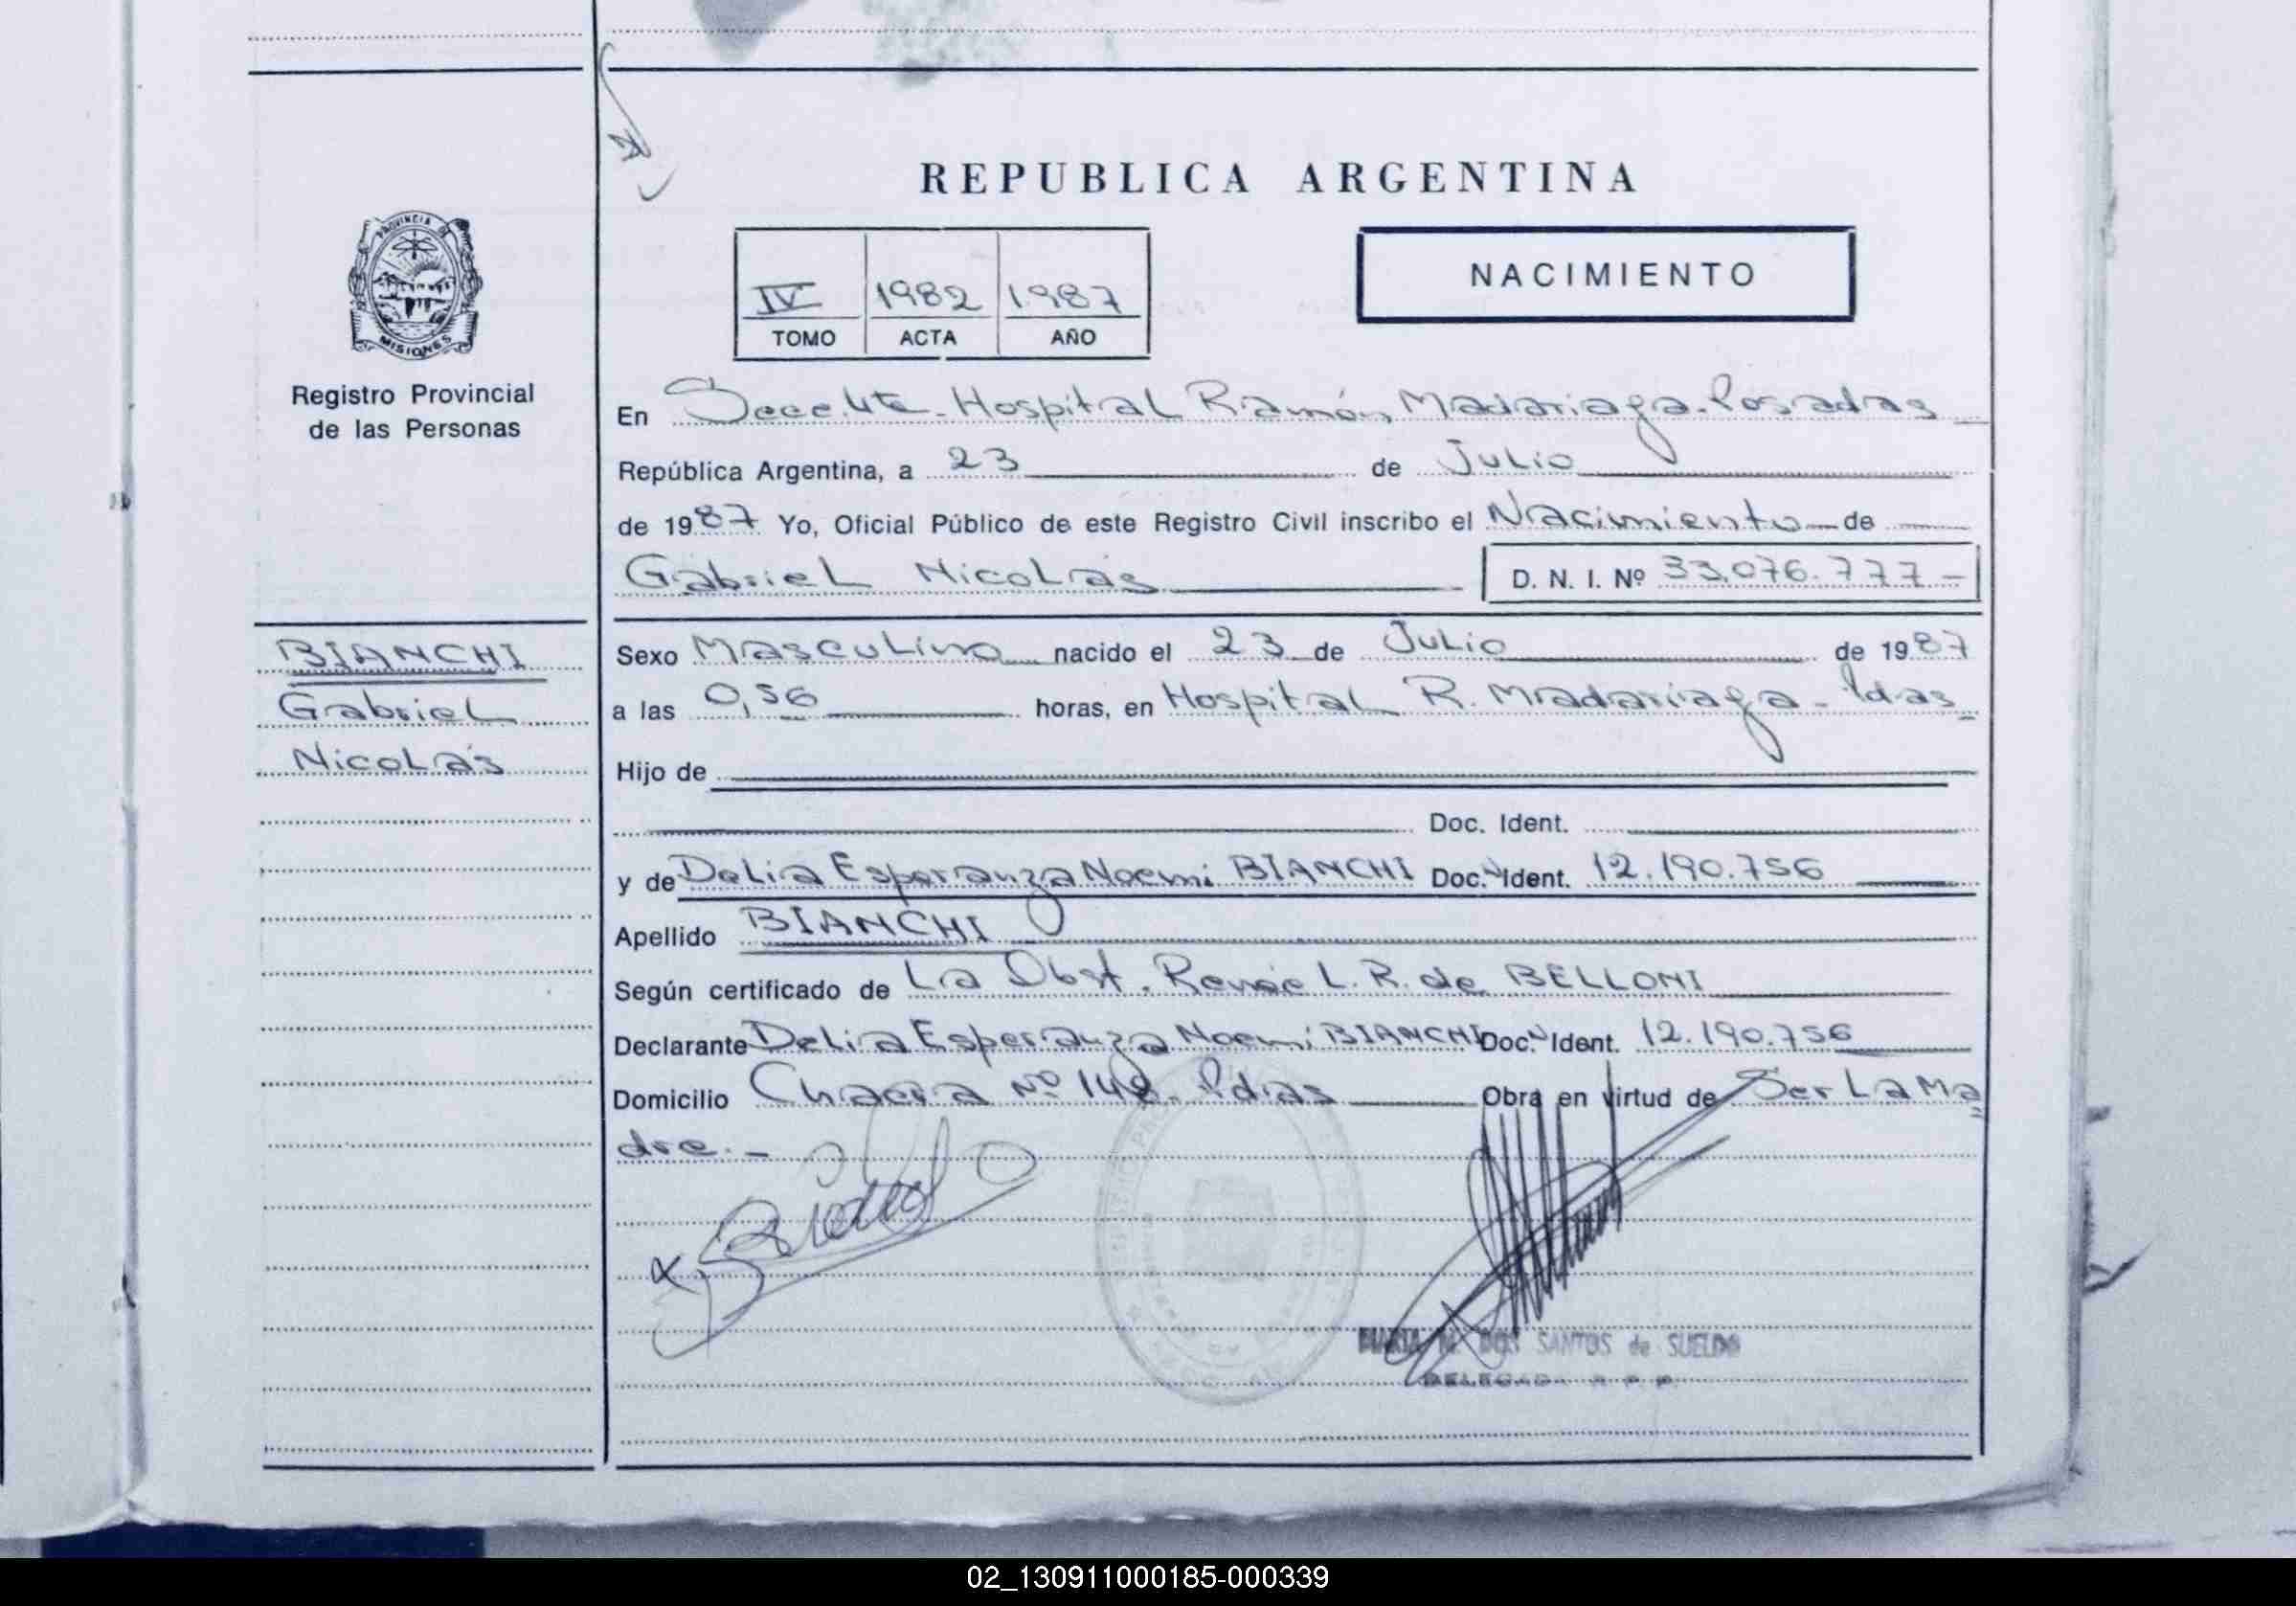 REPUBLICA ARGENTINA
NACIMIENTO
IV 1982 1987
TOMO ACTA AÑO
PROVINCIA DE
MISIONES
Registro Provincial
de las Personas
En Hospital Ramón Madariaga - Posadas
República Argentina, a 23 de Julio
de 1987 Yo, Oficial Público de este Registro Civil inscribo el Nacimiento de
Gabriel Nicolas D. N. I. Nº 33.076.777 -
BIANCHI
Gabriel
Nicolás
Sexo Masculino nacido el 23 de Julio de 1987
a las 0,56 horas, en Hospital R. Madariaga - Pdas
Hijo de
Doc. Ident.
y de Delia Esperanza Noemi BIANCHI Doc. Ident. 12.190.756
Apellido BIANCHI
Según certificado de La Obst. Renée L. R. de BELLONI
Declarante Delia Esperanza Noemi BIANCHI Doc. Ident. 12.190.756
Domicilio Chacra Nº 148. Pdas Obra en virtud de Ser La Ma
dre. -
MARIA M. DOS SANTOS de SUELDO
DELEGADA R. P. P.
02_130911000185-000339